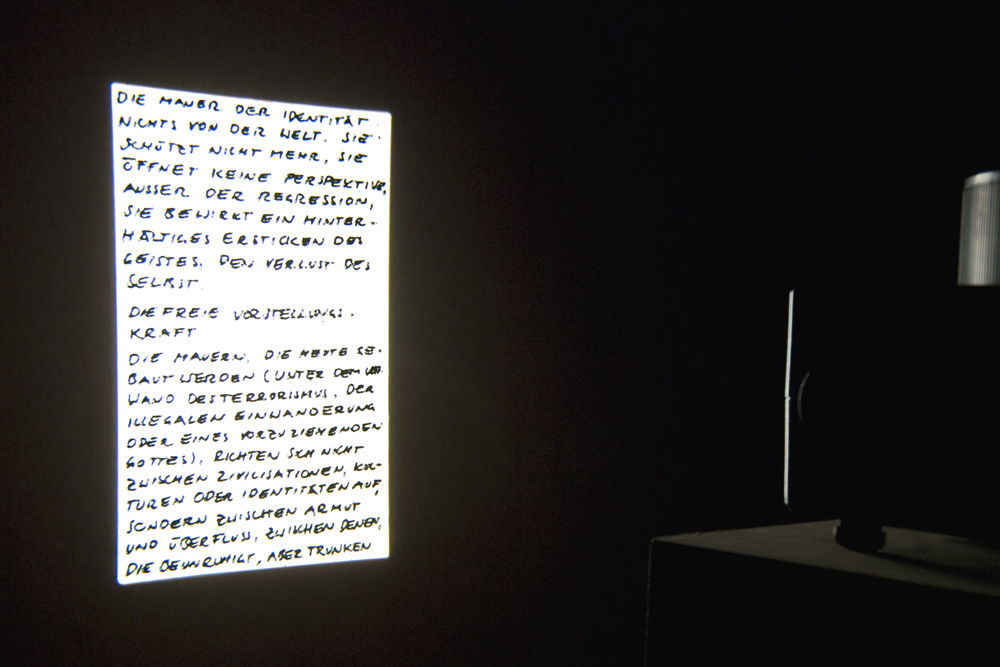 DIE MAUER DER IDENTITÄT
NICHTS VON DER WELT. SIE
SCHÜTZT NICHT MEHR, SIE
ÖFFNET KEINE PERSPEKTIVE,
AUSSER DER REGRESSION,
SIE BEWIRKT EIN HINTER-
HÄLTIGES ERSTICKEN DES
GEISTES, DEN VERLUST DES
SELBST.
DIE FREIE VORSTELLUNGS-
KRAFT
DIE MAUERN, DIE HEUTE GE-
BAUT WERDEN (UNTER DEM VOR-
WAND DES TERRORISMUS, DER
ILLEGALEN EINWANDERUNG
ODER EINES VORZUZIEHENDEN
GOTTES), RICHTEN SICH NICHT
ZWISCHEN ZIVILISATIONEN, KUL-
TUREN ODER IDENTITÄTEN AUF,
SONDERN ZWISCHEN ARMUT
UND ÜBERFLUSS, ZWISCHEN DENEN,
DIE BEUNRUHIGT, ABER TRUNKEN